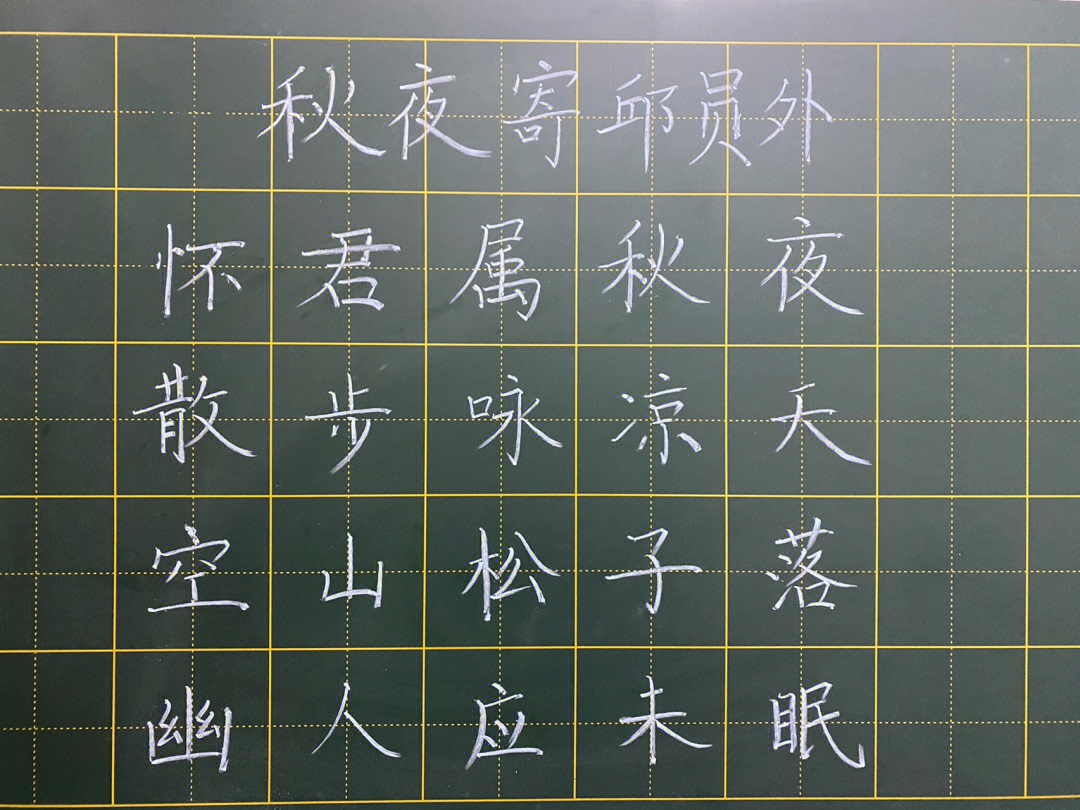 秋夜寄邱员外
怀君属秋夜
散步咏凉天
空山松子落
幽人应未眠